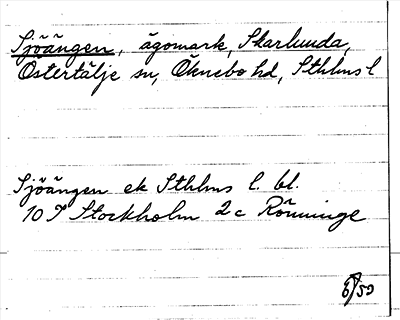 Sjöängen, ägomark, Skarlunda,
Östertälje sn, Öknebo hd, Sthlms l
Sjöängen ek Sthlms l. bl.
10 I Stockholm 2c Rönninge